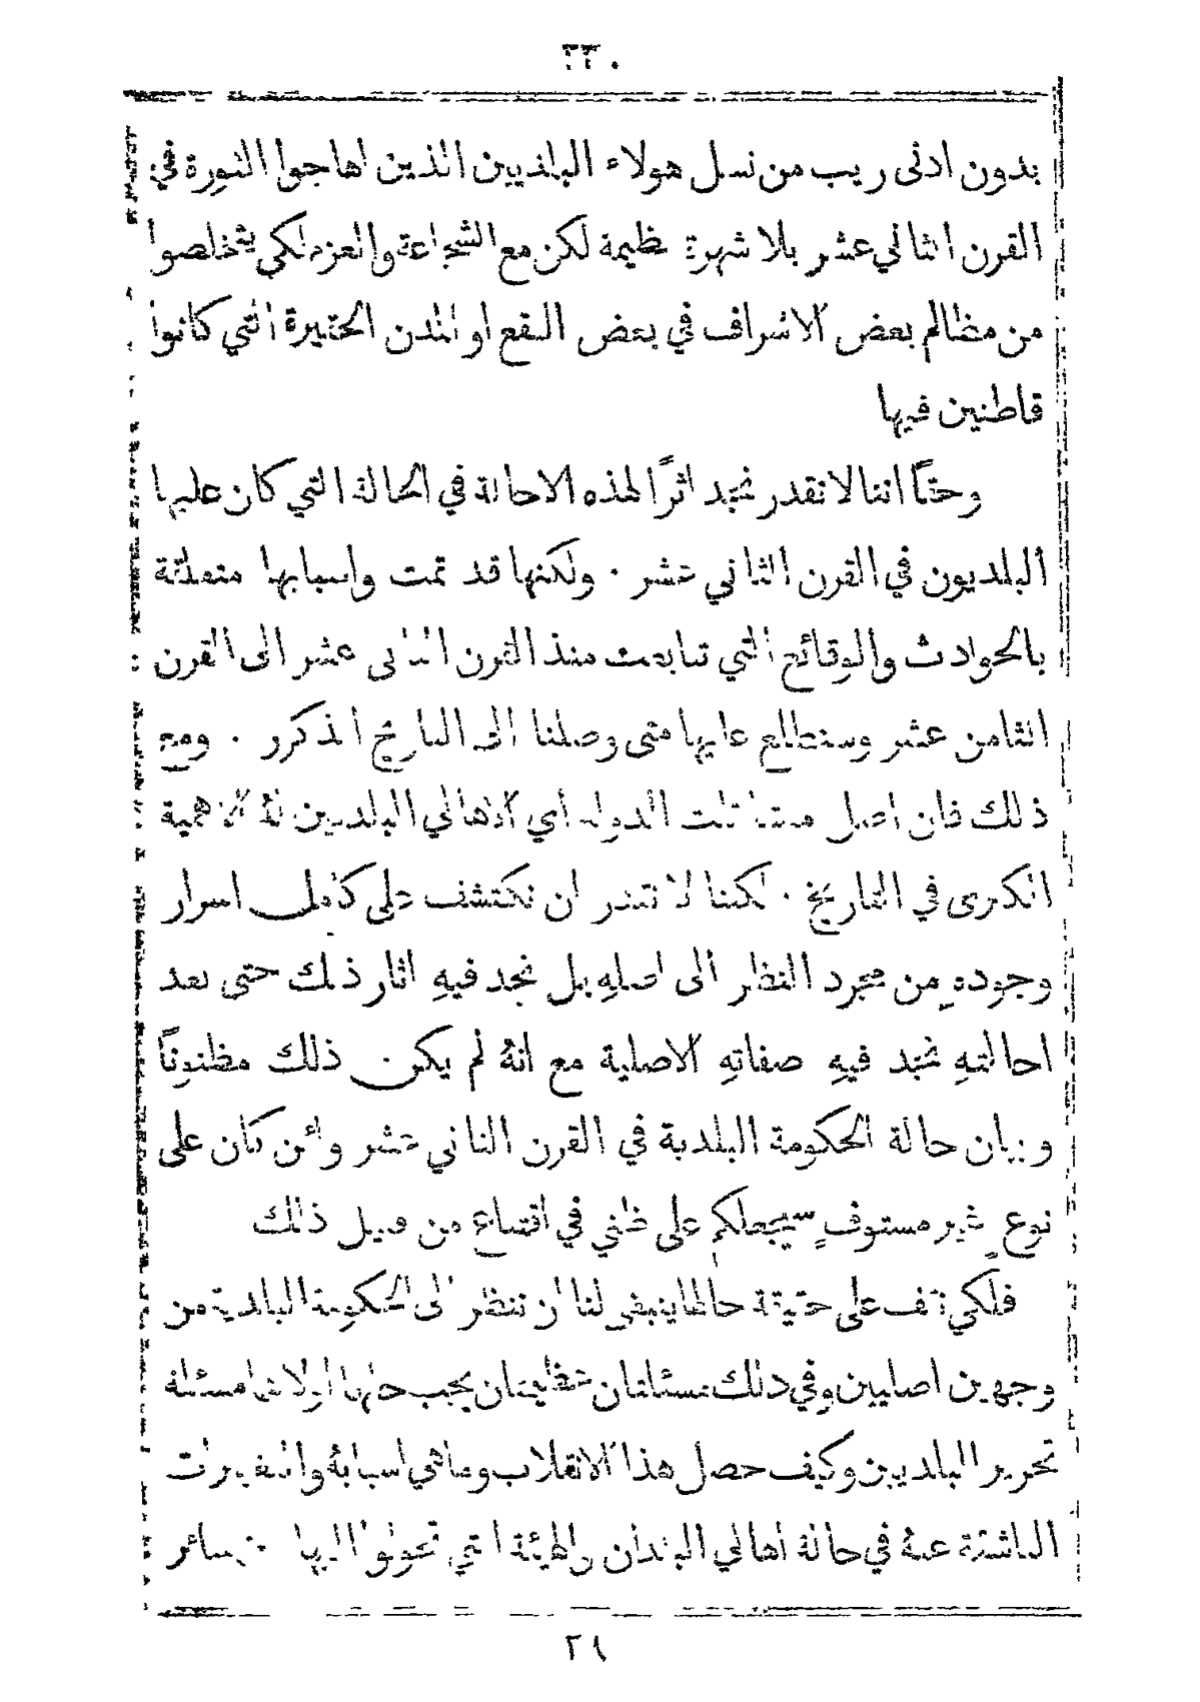 ٢٣٠
بدون ادنى ريب من نسل هولاء البلديين الذين اهاجوا الثورة في
القرن الثاني عشر بلا شهرة عظيمة لكن مع الشجاعة والعزم لكي يتخلصوا
من مظالم بعض الاشراف في بعض البقع او المدن الحقيرة التي كانوا
قاطنين فيها
وحقًا اننا لا نقدر نجد اثرًا لهذه الاحالة في الحالة التي كان عليها
البلديون في القرن الثاني عشر . ولكنها قد تمت واسبابها متعلقة
بالحوادث والوقائع التي تتابعت منذ القرن الثاني عشر الى القرن
الثامن عشر وسنطلع عليها متى وصلنا الى التاريخ المذكور . ومع
ذلك فان اصل الدولة أي الاهالي البلديين لهُ الاهمية
الكبرى في التاريخ . لكننا لا نقدر ان نكتشف على كامل اسرار
وجودهِ من مجرد النظر الى اصلهِ بل نجد فيهِ اثار ذلك حتى بعد
احالتهِ نجد فيهِ صفاتهِ الاصلية مع انهُ لم يكن ذلك مظنونًا
وبيان حالة الحكومة البلدية في القرن الثاني عشر ولئن كان على
نوع غير مستوفٍ سيجعلكم على ظني في اقتناع من قبيل ذلك
فلكي نقف على حقيقة حالها ينبغي لنا ان ننظر الى الحكومة البلدية من
وجهين اصليين وفي ذلك مسئلتان عظيمتان يجب حلها الاولى مسئلة
تحرير البلديين وكيف حصل هذا الانقلاب وما هي اسبابهُ والتغييرات
الناشئة عنهُ في حالة اهالي البلدان والهيئة التي تحولوا اليها سائر
٢٩